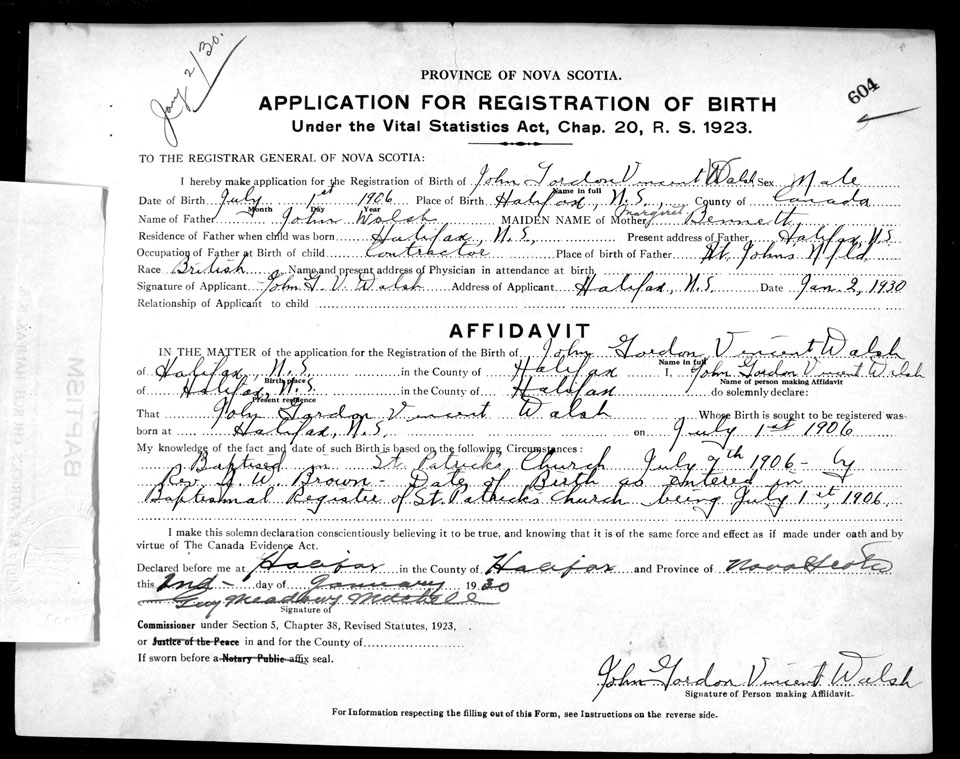 Jany 2/30.
604
PROVINCE OF NOVA SCOTIA.
APPLICATION FOR REGISTRATION OF BIRTH
Under the Vital Statistics Act, Chap. 20, R. S. 1923.
TO THE REGISTRAR GENERAL OF NOVA SCOTIA:
I hereby make application for the Registration of Birth of John Gordon Vincent Walsh Sex Male
Name in full
Date of Birth July 1st 1906 Place of Birth Halifax, N.S., County of Canada
Month Day Year
Name of Father John Walsh MAIDEN NAME of Mother Margaret Bennett
Residence of Father when child was born Halifax, N.S., Present address of Father Halifax, N.S
Occupation of Father at Birth of child Contractor Place of birth of Father St. Johns Nfld
Race British Name and present address of Physician in attendance at birth
Signature of Applicant John G. V. Walsh Address of Applicant Halifax, N.S. Date Jan. 2, 1930
Relationship of Applicant to child
AFFIDAVIT
IN THE MATTER of the application for the Registration of the Birth of John Gordon Vincent Walsh
Name in full
of Halifax, N.S. in the County of Halifax I, John Gordon Vincent Walsh
Birth place Name of person making Affidavit
of Halifax, N.S. in the County of Halifax do solemnly declare:
Present residence
That John Gordon Vincent Walsh Whose Birth is sought to be registered was
born at Halifax, N.S. on July 1st 1906
My knowledge of the fact and date of such Birth is based on the following Circumstances:
Baptised in St. Patrick's Church July 7th 1906 - by
Rev. W. Brown - Date of Birth as entered in
Baptismal Register of St. Patrick's Church being July 1st, 1906.
I make this solemn declaration conscientiously believing it to be true, and knowing that it is of the same force and effect as if made under oath and by
virtue of The Canada Evidence Act.
Declared before me at Halifax in the County of Halifax and Province of Nova Scotia
this 2nd - day of January 1930
Guy Meadows Mitchell
Signature of
Commissioner under Section 5, Chapter 38, Revised Statutes, 1923,
or Justice of the Peace in and for the County of
If sworn before a Notary Public affix seal.
John Gordon Vincent Walsh
Signature of Person making Affidavit.
For Information respecting the filling out of this Form, see Instructions on the reverse side.
BAPTISM